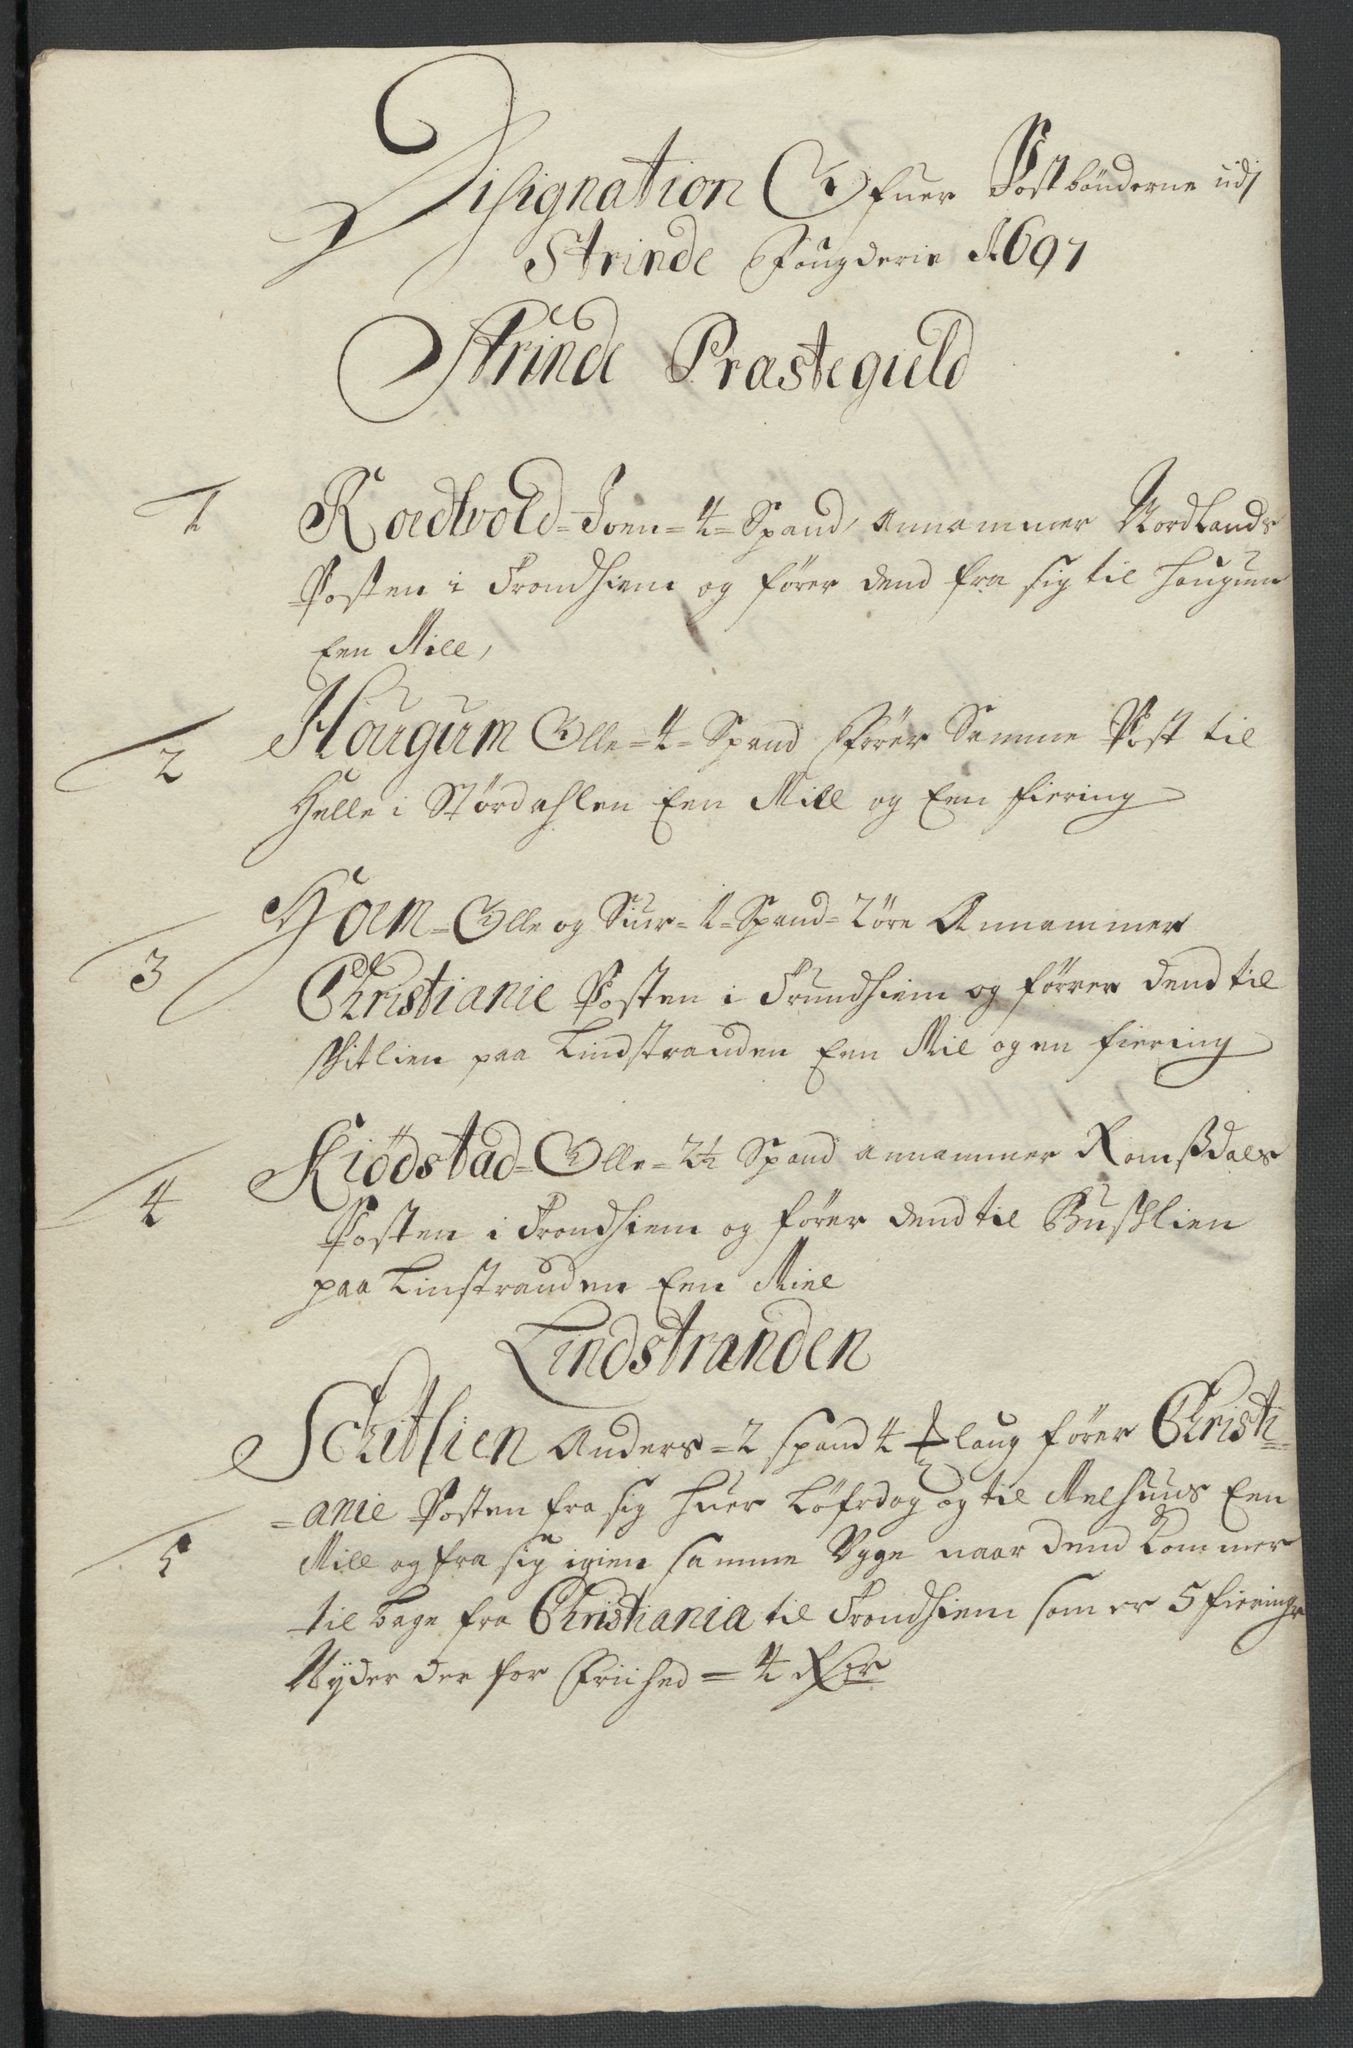 Disignation Ofuer Postbönderne udj
Strinde Fougderie A 1697
Strinde Præstegield
1 Roedtvold = Joen = 4 = Spand, annammer Nordlands
Posten i Trondhiem og fører dend fra sig til Hougum
Een Mill,
2 Hougum Olle = 4 = Spand fører Samme Post til
Helle i Størdahlen Een Mill og Een fiering
3 Hoem = Olle og Siur = 1 = Spand = 2 öre Annammer
Christianie Posten i Trundhiem og förrer dend til
Schitlien paa Lindstranden Een Mil og en fiering
4 Kiödstad = Olle = 2½ Spand annammer Romßdals
Posten i Trondhiem og fører dend til Buschlien
paa Linstranden Een Miel
Lindstranden
Schitlien Anders = 2 spand 4 ½ laug fører Christi=
5 =anie Posten fra sig huer Løfrdag og til Melhuus Een
Mill og fra sig igien samme Uge naar dend kommer
til bage fra Christiania til Trondhiem som er 5 fieringr
Nyder der for Friihed = 4 Rdr